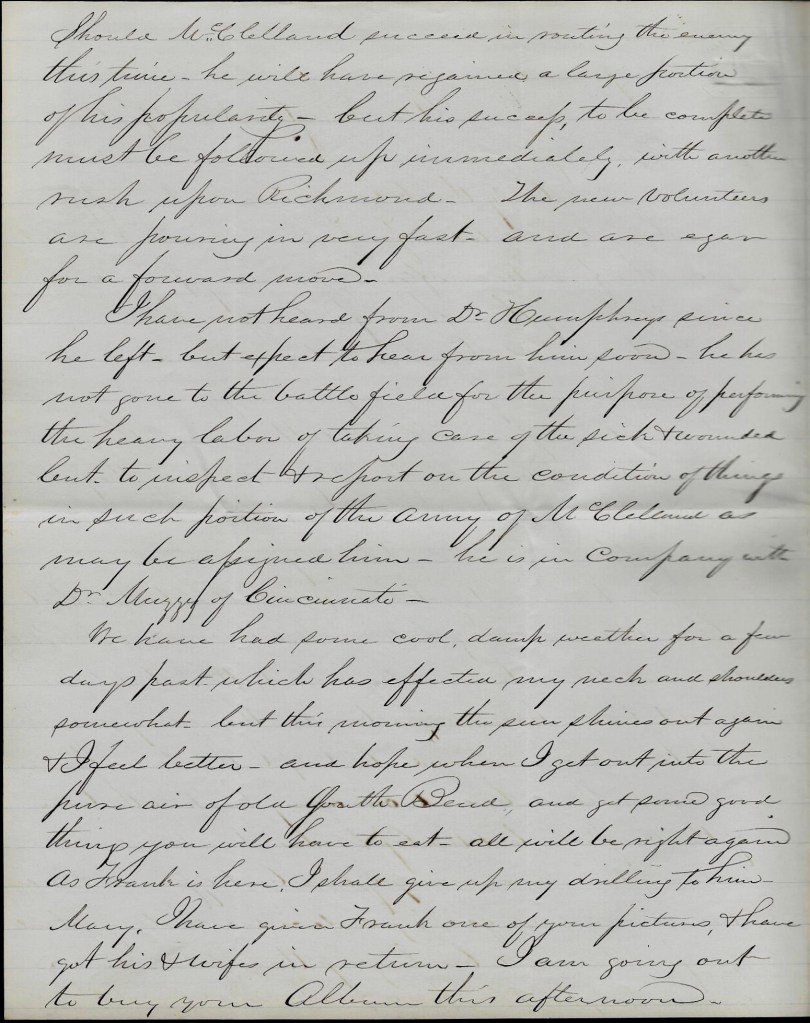 Should McClelland succeed in routing the enemy
this time - he will have regained a large portion
of his popularity - but his success, to be complete
must be followed up immediately, with another
rush upon Richmond - The new Volunteers
are pouring in very fast - and are egar
for a forward move -
I have not heard from Dr Humphreys since
he left - but expect to hear from him soon - he has
not gone to the battle field for the purpose of performing
the heavy labor of taking care of the sick & wounded
but - to inspect & report on the condition of things
in such portion of the army of McClelland as
may be assigned him - he is in Company with
Dr Muzzy of Cincinnati -
We have had some cool, damp weather for a few
days past - which has effected my neck and shoulders
somewhat - but this morning the sun shines out again
& I feel better - and hope when I get out into the
pure air of old South Bend, and get some good
things you will have to eat - all will be right again
As Frank is here, I shall give up my drilling to him -
Mary, I have given Frank one of your pictures, & have
got his & wifes in return - I am going out
to buy your Album this afternoon -